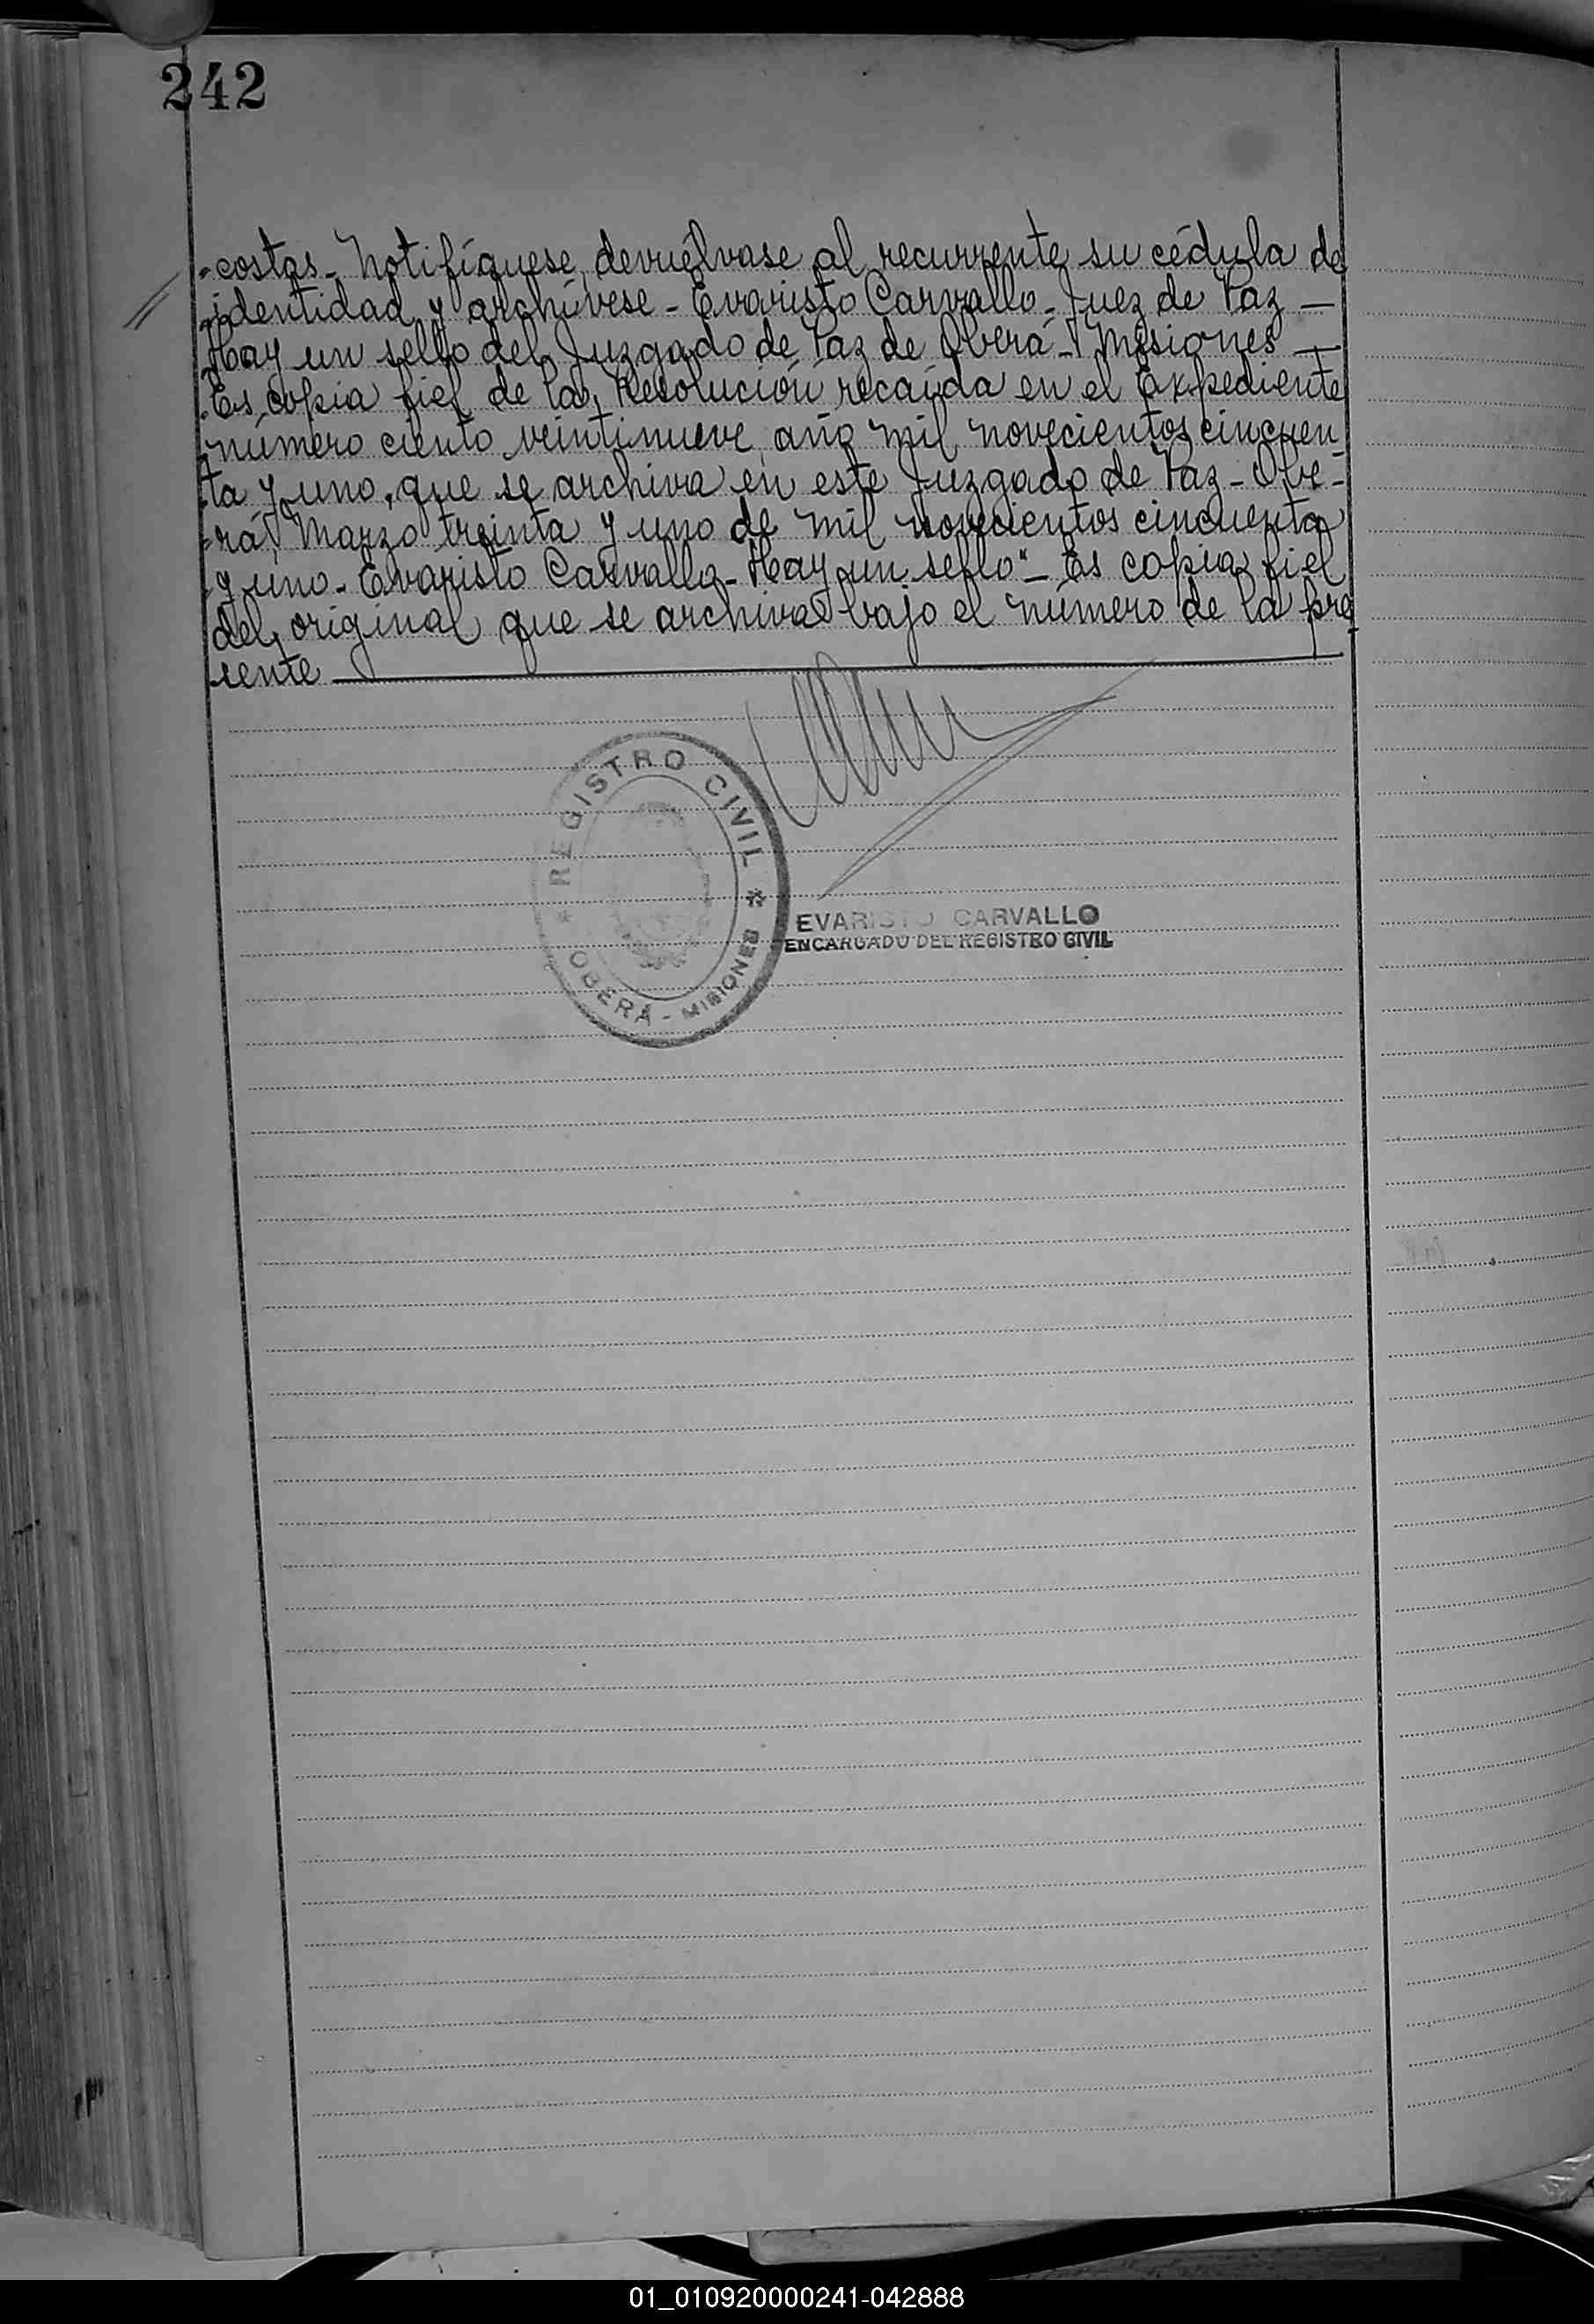 242
-costas- Notifíquese, devuélvase al recurrente su cédula de
identidad y archívese- Evaristo Carvallo- Juez de Paz —
Hay un sello del Juzgado de Paz de Oberá- Misiones —
Es copia fiel de la Resolución recaída en el Expediente
número ciento veintinueve, año mil novecientos cincuen
ta y uno, que se archiva en este Juzgado de Paz- Obe-
-rá, Marzo treinta y uno de mil novecientos cincuenta
y uno- Evaristo Carvallo- Hay un sello"- Es copia fiel
del original que se archiva bajo el número de la pre
sente
REGISTRO CIVIL
OBERÁ - MISIONES
EVARISTO CARVALLO
ENCARGADO DEL REGISTRO CIVIL
01_010920000241-042888